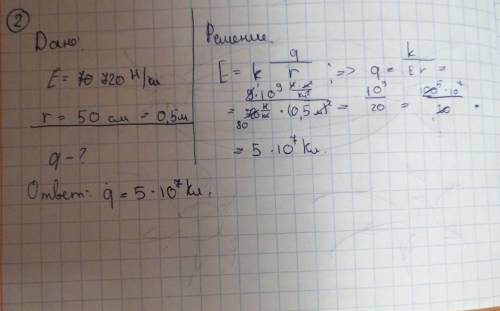 ②
Дано:
E = 720 Н/Кл
r = 50 см = 0,5м
q - ?
Решение
E = k q/r ; => q = k/Er =
= 9·10⁹ / 720 · (0,5м)² = 10⁹/20 = 10⁹/20 ·
80
= 5 · 10⁷ Кл.
Ответ: q = 5 · 10⁷ Кл.